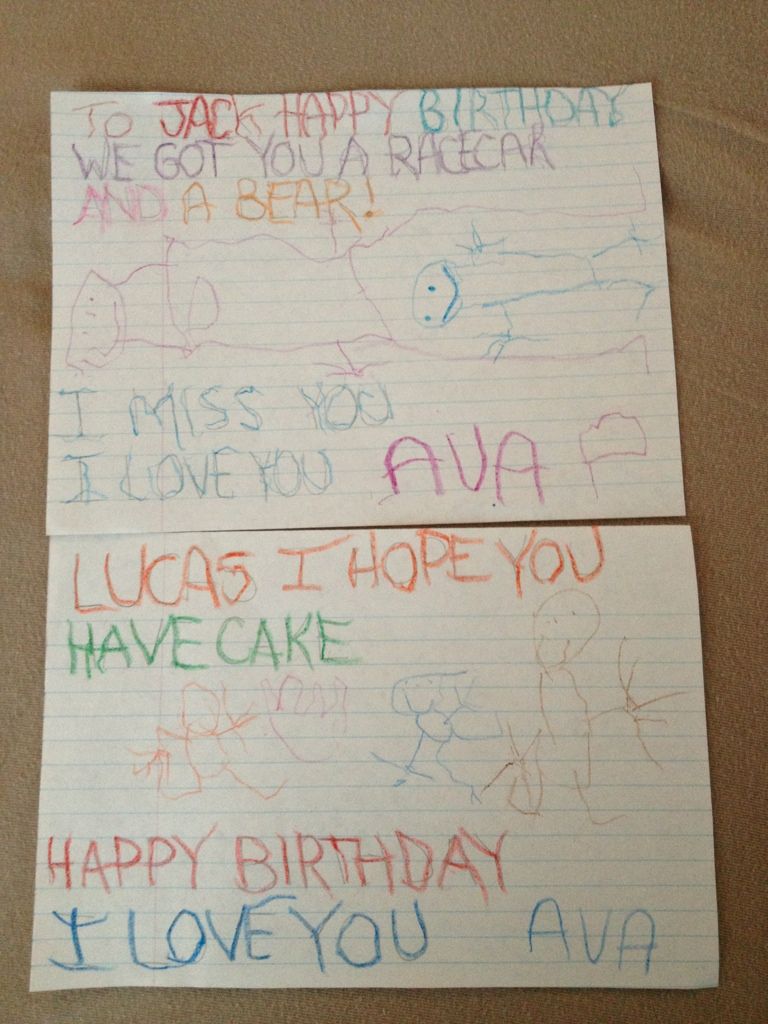 TO JACK HAPPY BIRTHDAY
WE GOT YOU A RACECAR
AND A BEAR!
I MISS YOU
I LOVE YOU AVA
LUCAS I HOPE YOU
HAVE CAKE
HAPPY BIRTHDAY
I LOVE YOU AVA